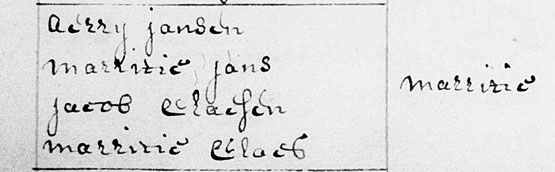 aerry jansen
marritie jans
jacob Claesen
marritie Claes
marritie